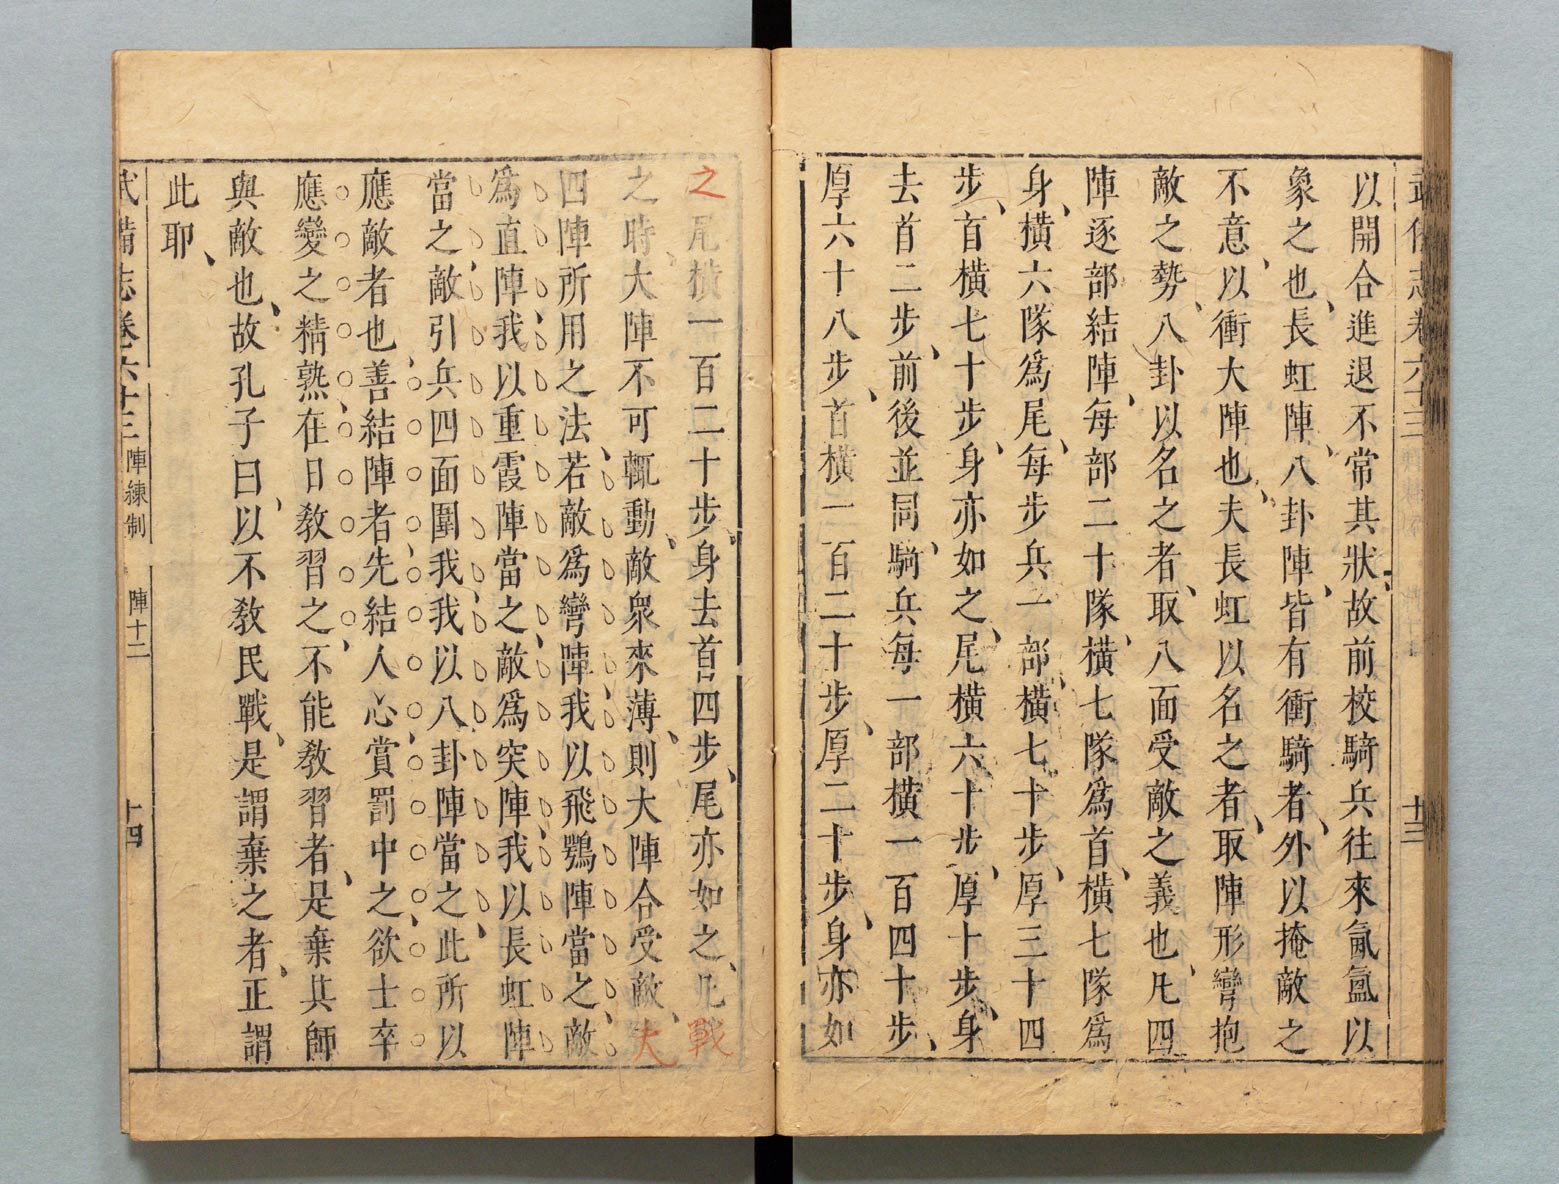 武備志卷六十三
十三
以開合進退不常其狀故前校騎兵往來氤氳以
象之也長虹陣八卦陣皆有衝騎者外以掩敵之
不意以衝大陣也夫長虹以名之者取陣形彎抱
敵之勢八卦以名之者取八面受敵之義也凡四
陣逐部結陣每部二十隊橫七隊爲首橫七隊爲
身橫六隊爲尾每步兵一部橫七十步厚三十四
步首橫七十步身亦如之尾橫六十步厚十步身
去首二步前後並同騎兵每一部橫一百四十步
厚六十八步首橫一百二十步厚二十步身亦如
之尾橫一百二十步身去首四步尾亦如之凡戰
之時大陣不可輒動敵衆來薄則大陣合受敵夫
四陣所用之法若敵爲彎陣我以飛鶚陣當之敵
爲直陣我以重霞陣當之敵爲突陣我以長虹陣
當之敵引兵四面圍我我以八卦陣當之此所以
應敵者也善結陣者先結人心賞罰中之欲士卒
應變之精熟在日敎習之不能敎習者是棄其師
與敵也故孔子曰以不敎民戰是謂棄之者正謂
此耶
武備志卷六十三 陣練制 陣十二
十四